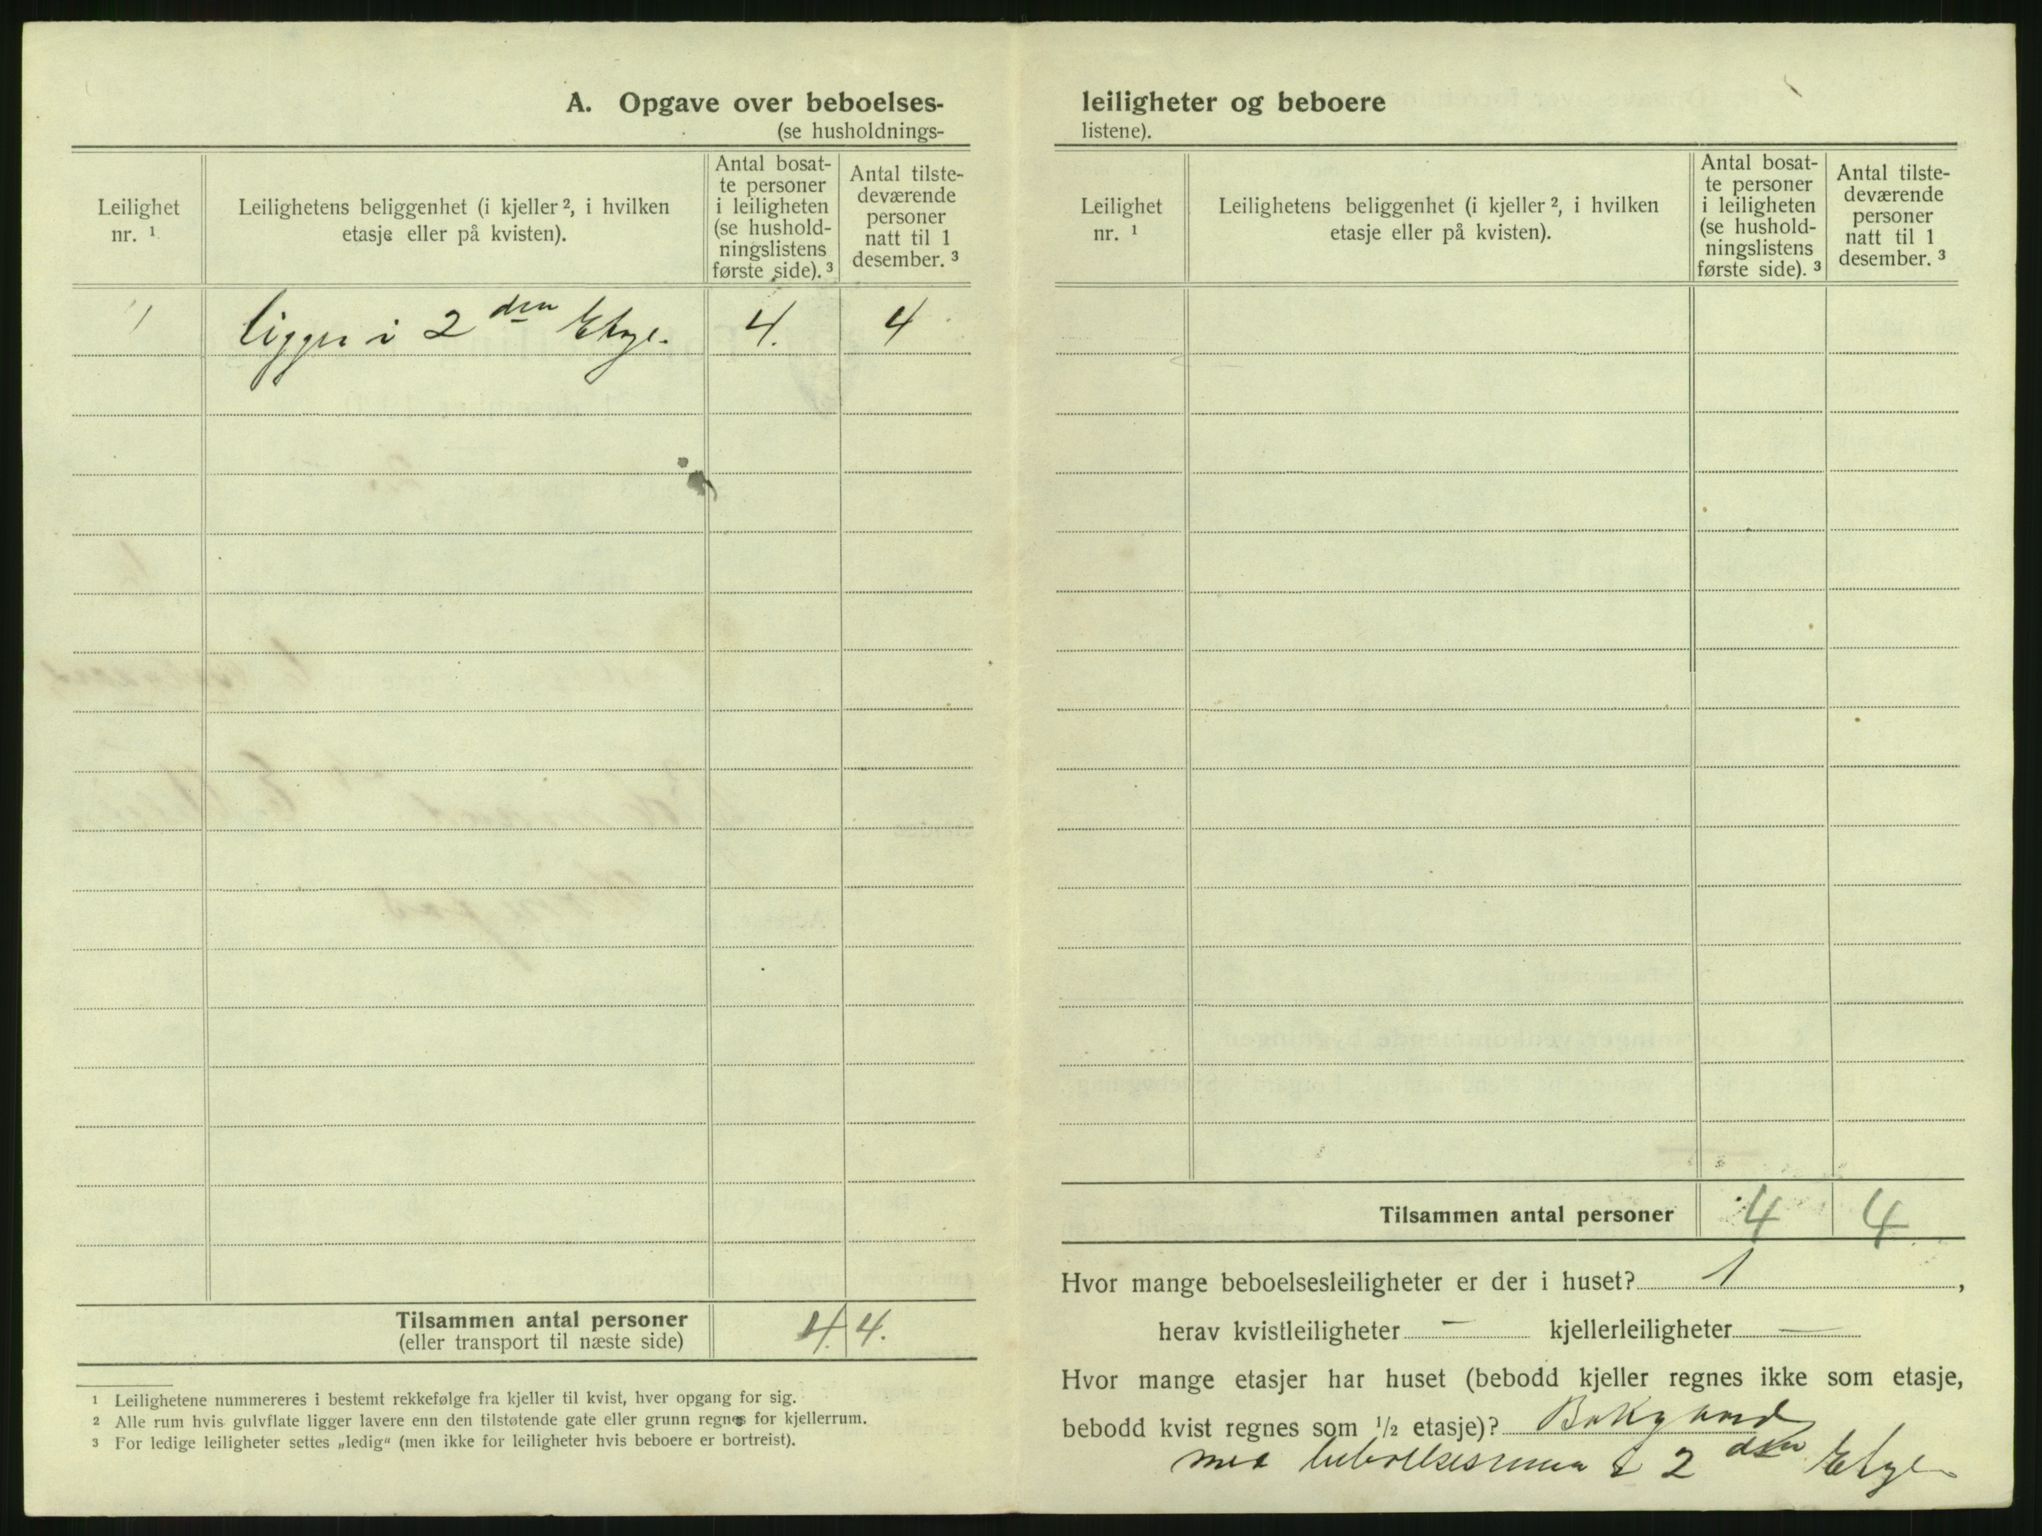 A. Opgave over beboelses-
(se husholdnings-
Leilighet
nr. 1
Leilighetens beliggenhet (i kjeller 2, i hvilken
etasje eller på kvisten).
Antal bosat-
te personer
i leiligheten
(se hushold-
ningslistens
første side). 3
Antal tilste-
deværende
personer
natt til 1
desember. 3
1 ligger i 2 den Etge. 4. 4
Tilsammen antal personer 4. 4.
(eller transport til næste side)
1 Leilighetene nummereres i bestemt rekkefølge fra kjeller til kvist, hver opgang for sig.
2 Alle rum hvis gulvflate ligger lavere enn den tilstøtende gate eller grunn regnes for kjellerrum.
3 For ledige leiligheter settes „ledig“ (men ikke for leiligheter hvis beboere er bortreist).
leiligheter og beboere
listene).
Leilighet
nr. 1
Leilighetens beliggenhet (i kjeller 2, i hvilken
etasje eller på kvisten).
Antal bosat-
te personer
i leiligheten
(se hushold-
ningslistens
første side). 3
Antal tilste-
deværende
personer
natt til 1
desember. 3
Tilsammen antal personer 4 4
Hvor mange beboelsesleiligheter er der i huset? 1,
herav kvistleiligheter — kjellerleiligheter —
Hvor mange etasjer har huset (bebodd kjeller regnes ikke som etasje,
bebodd kvist regnes som 1/2 etasje)? Bakgaard
med 2 den Etge